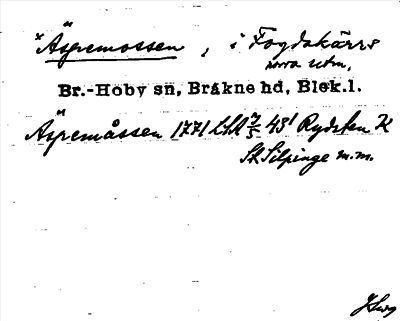 *Äspemossen, i Fogdakärrs
norra utm,
Br.-Hoby sn, Bräkne hd, Blek.l.
Äspemåssen 1771 LSA 7/5 43¹ Rydsten K
Sk Silpinge m.m.